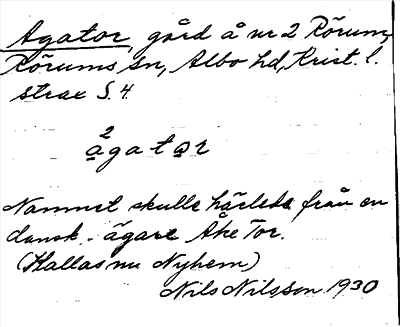 Agator, gård å nr 2 Rörum,
Rörums sn, Albo hd, Krist. l.
strax S. 4.
2
a̲gatɑ̲r
Namnet skulle härleda från en
dansk - ägare Åke Tor.
(Kallas nu Nyhem)
Nils Nilsson 1930